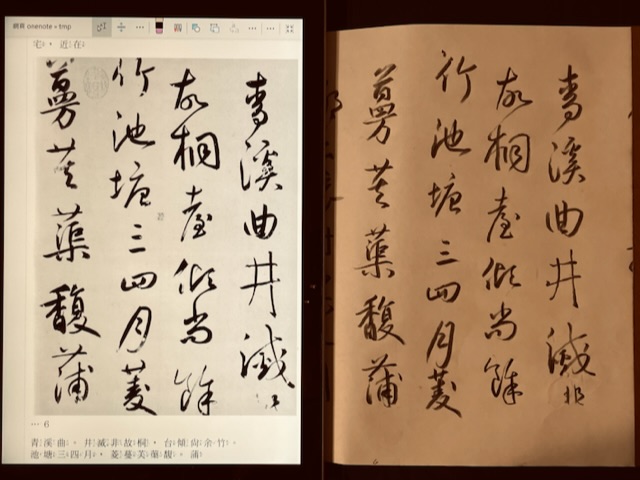 網頁 onenote + tmp
宅，近在
青溪曲井滅非
故桐臺傾尚餘
竹池塘三四月菱
蔓芙蕖馥蒲
… 6
青溪曲，井滅非故桐，台傾尚余竹。
池塘三四月，菱蔓芙蕖馥。蒲
青溪曲井滅非
故桐臺傾尚餘
竹池塘三四月菱
蔓芙蕖馥蒲